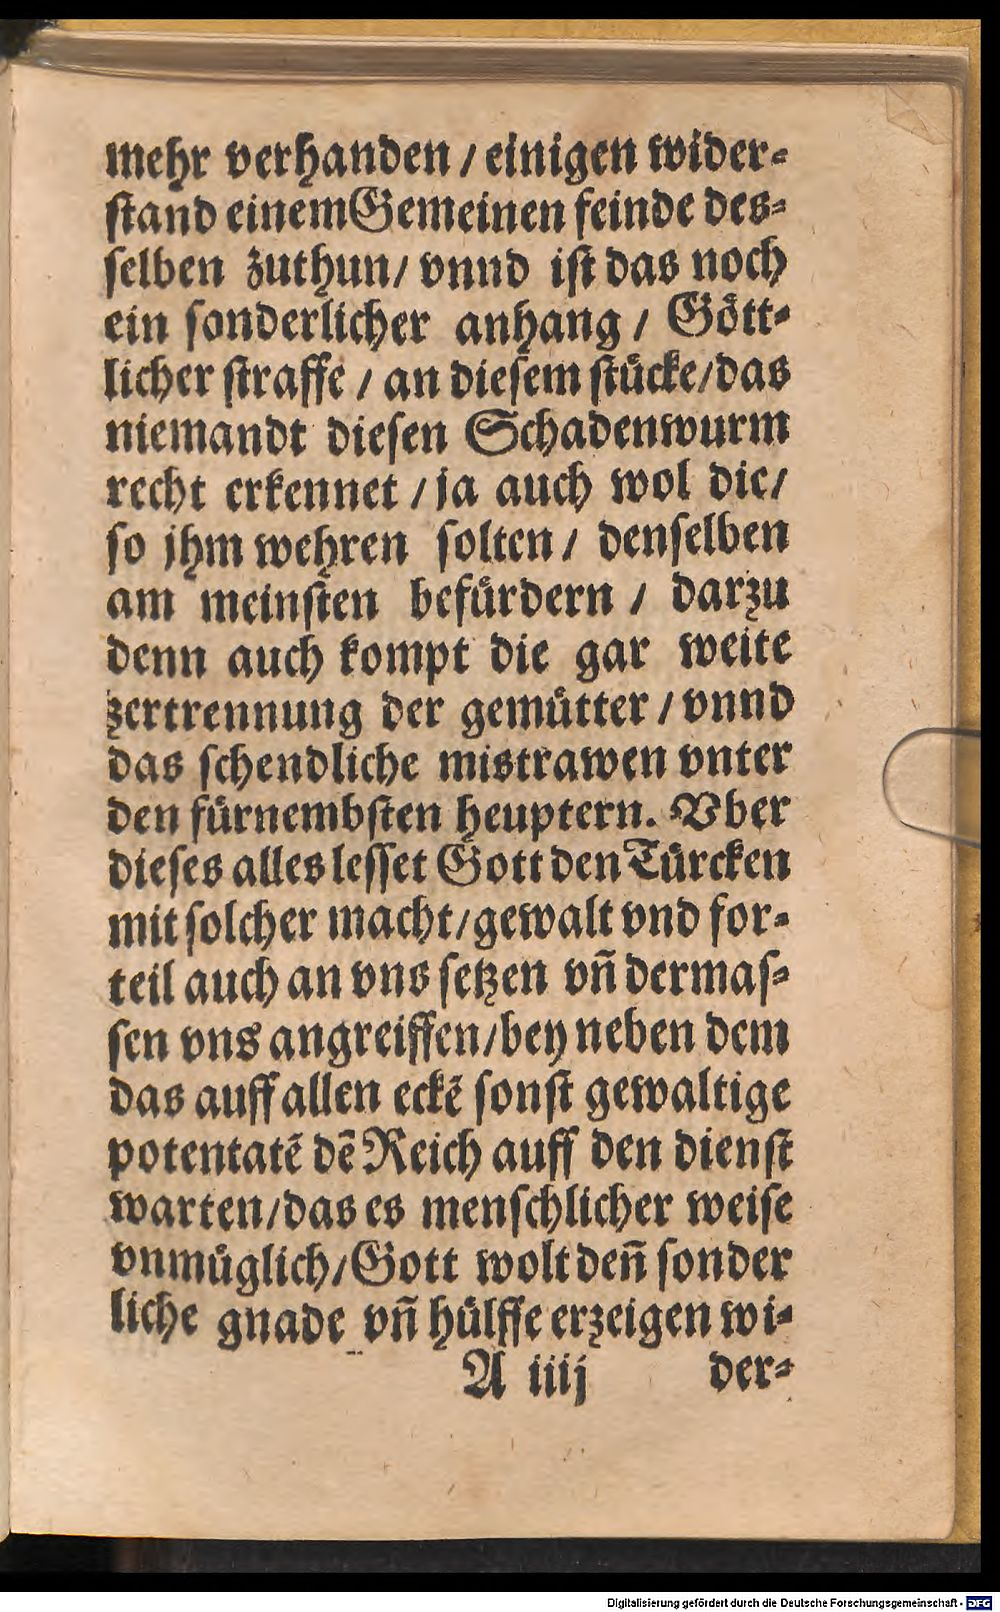 mehr verhanden / einigen wider⸗
ſtand einem Gemeinen feinde des⸗
ſelben zuthun / vnnd iſt das noch
ein ſonderlicher anhang / Goͤtt⸗
licher ſtraffe / an dieſem ſtuͤcke / das
niemandt dieſen Schadenwurm
recht erkennet / ja auch wol die /
ſo jhm wehren ſolten / denſelben
am meinſten befuͤrdern / darzu
denn auch kompt die gar weite
zertrennung der gemuͤtter / vnnd
das ſchendliche mistrawen vnter
den fuͤrnembſten heuptern. Vber
dieſes alles leſſet Gott den Tuͤrcken
mit ſolcher macht / gewalt vnd for⸗
teil auch an vns ſetzen vn̄ dermaſ⸗
ſen vns angreiffen / bey neben dem
das auff allen eckē ſonſt gewaltige
potentatē dē Reich auff den dienſt
warten / das es menſchlicher weiſe
vnmuͤglich / Gott wolt den̄ ſonder
liche gnade vn̄ huͤlffe erzeigen wi⸗
A iiij der⸗
Digitalisierung gefördert durch die Deutsche Forschungsgemeinschaft - DFG